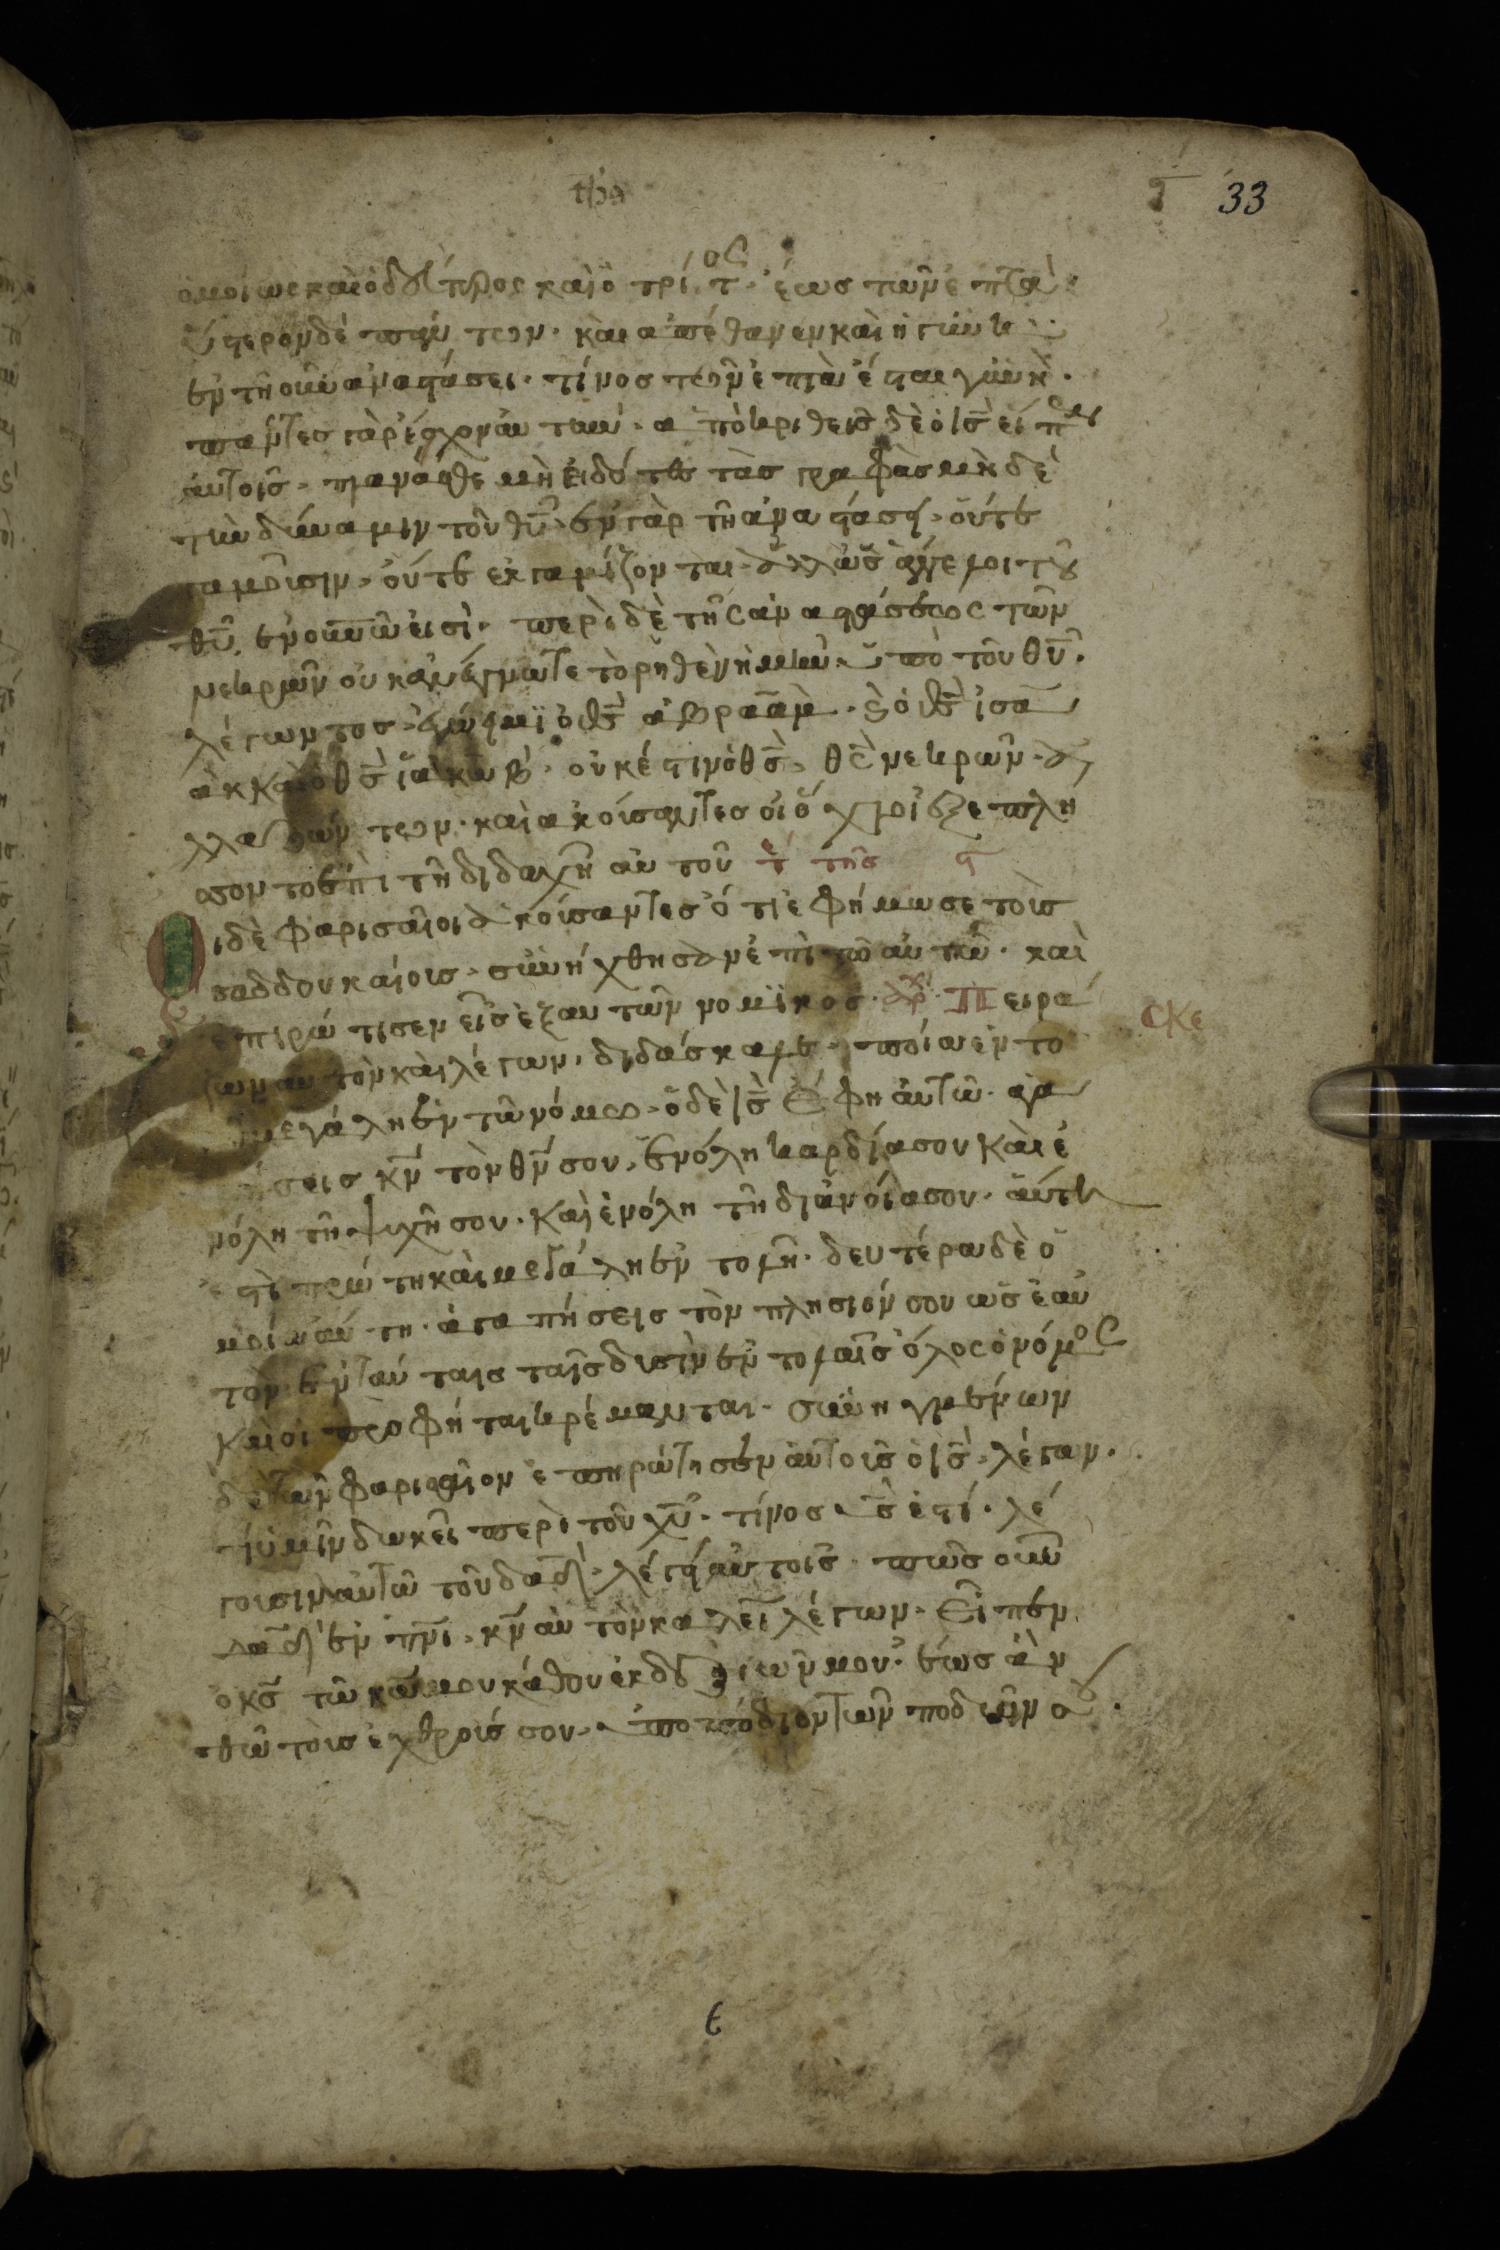 33
ὁμοίως καὶ ὁ δεύτερος καὶ ὁ τρίτος · ἕως τῶν ἑπτά ·
ὕστερον δὲ πάντων · καὶ ἀπέθανεν καὶ ἡ γυνή ·
ἐν τῇ οὖν ἀναστάσει · τίνος τῶν ἑπτὰ ἔσται γυνή ·
πάντες γὰρ ἔσχον αὐτήν · ἀποκριθεὶς δὲ ὁ ις εἶπεν
αὐτοῖς · πλανᾶσθε μὴ εἰδότες τὰς γραφὰς μηδὲ
τὴν δύναμιν τοῦ θυ · ἐν γὰρ τῇ ἀναστάσει · οὔτε
γαμοῦσιν · οὔτε ἐκγαμίζονται · ἀλλ ὡς ἄγγελοι τοῦ
θυ ἐν οὐνω εἰσί · περὶ δὲ τῆς ἀναστάσεως τῶν
νεκρῶν οὐκ ἀνέγνωτε τὸ ῥηθὲν ἡμῖν ὑπὸ τοῦ θυ ·
λέγωντος · ἐγώ εἰμι ὁ θς ἀβραάμ · καὶ ὁ θς ἰσα
ὰκ καὶ ὁ θς ἰακώβ · οὐκ έστιν ὁ θς · θς νεκρῶν · ἀ
λλα ζώντων · καὶ ἀκούσαντες οἱ ὄχλοι ἐξεπλη
σοντο ἐπὶ τῇ διδαχῇ αὐτοῦ τέ τῆς
Οἱ δὲ φαρισαῖοι ἀκούσαντες ὅτι ἐφήμωσε τοὺς
σαδδουκαίοις · συνήχθησαν ἐπὶ τὸ αὐτό · καὶ
ἐπιρώτισεν εἷς ἐξ αὐτῶν νομικος · Πειρά
ζων αὐτὸν καὶ λέγων · διδάσκαλε · ποία ἐντο
μεγάλη ἐν τῶ νόμω · ὁ δὲ ις ἔφη αὐτῶ · αγα
σεις κν τὸν θν σου · ἐν ὅλη καρδία σου καὶ ἐ
νόλη τῇ ψυχῇ σου · καὶ ἐνόλη τῇ διανοία σου · αὕτη
ἐστὶ πρώτη καὶ μεγάλη ἐντολή · δευτέρα δὲ ὁ
μοία αὐτη · ἀγαπήσεις τὸν πλησίον σου ὡς ἑαυ
τόν · ἐν ταύταις ταῖς δυσὶν ἐντολαῖς ὅλος ὁ νόμος
καὶ οἱ προφήται κρέμανται · συνηγμένων
δὲ τῶν φαρισαίον ἐπηρώτησεν αὐτοῖς ὁ ις · λέγων ·
τί ὑμῖν δωκεῖ περὶ τοῦ χυ · τίνος υς ἐστί · λέ
γουσιν αὐτῶ τοῦ δαδ · λέγει αὐτοῖς · πῶς οὖν
δαδ ἐν πνι · κν αὐτὸν καλεῖ λέγων · Εἶπεν
ὁ κς τῶ κω μου κάθου ἐκ δεξιῶν μου · ἕως ἂν
θῶ τοὺς ἐχθρούς σου · ὑποπόδιον τῶν ποδῶν σου ·
ϲκε
ϵ